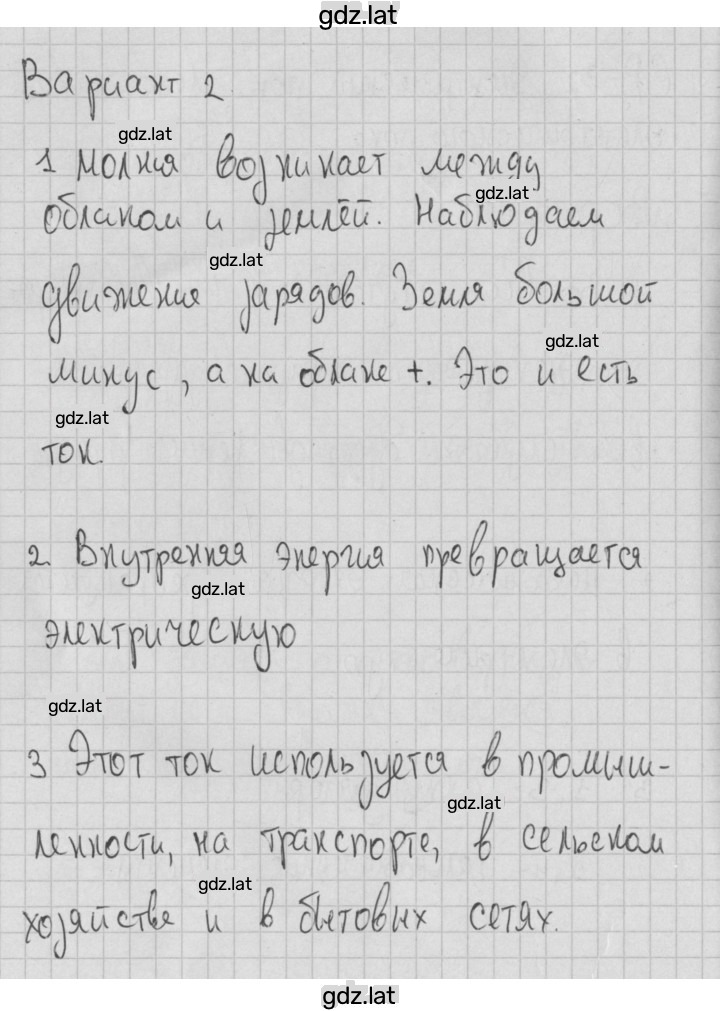 gdz.lat
Вариант 2
gdz.lat
1 Молния возникает между
gdz.lat
облаком и землёй. Наблюдаем
gdz.lat
движения зарядов. Земля большой
gdz.lat
минус, а на облаке +. Это и есть
gdz.lat
ток.
2. Внутренняя энергия превращается
gdz.lat
электрическую
gdz.lat
3 Этот ток используется в промыш-
gdz.lat
ленности, на транспорте, в сельском
gdz.lat
хозяйстве и в бытовых сетях.
gdz.lat